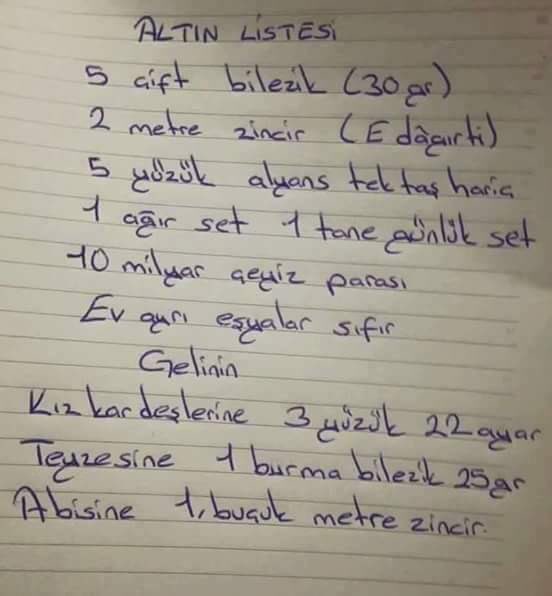 ALTIN LİSTESİ
5 çift bilezik (30 gr)
2 metre zincir (E dâgırti)
5 yüzük alyans tek taş hariç
1 ağır set 1 tane günlük set
10 milyar çeyiz parası
Ev ayrı eşyalar sıfır
Gelinin
Kız kardeşlerine 3 yüzük 22 ayar
Teyzesine 1 burma bilezik 25gr
Abisine 1,buçuk metre zincir.